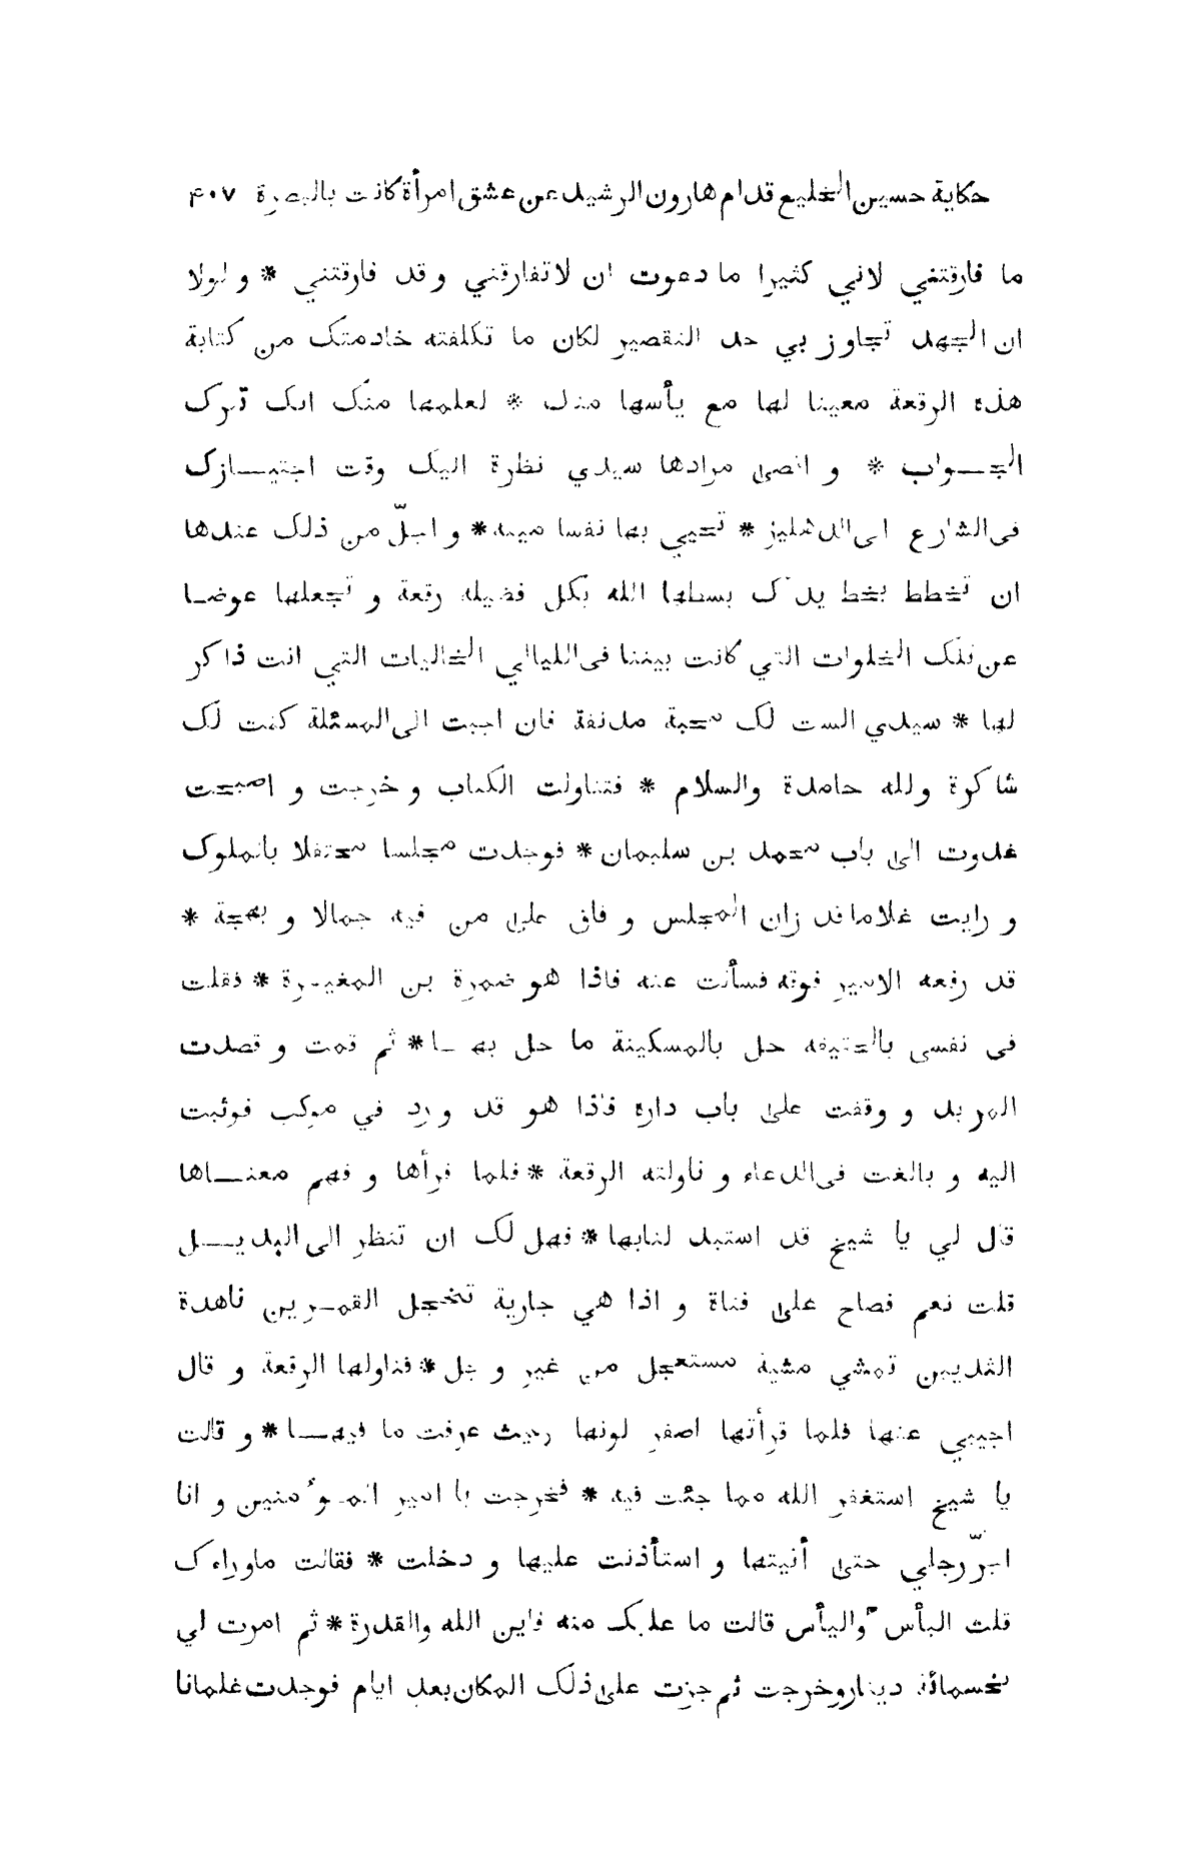 حكاية حسين الخليع قدام هارون الرشيد عن عشق امرأة كانت بالبصرة ۴۰۷
ما فارقتني لاني كثيرا ما دعوت ان لاتفارقني وقد فارقتني * ولولا
ان الجهد تجاوز بي حد التقصير لكان ما تكلفته خادمتك من كتابة
هذه الرقعة معينا لها مع يأسها منك * لعلمها منك انك تترك
الجــواب * و اقصى مرادها سيدي نظرة اليك وقت اجتيـــازك
فى الشارع الى الدهليز * تحيي بها نفسا ميتة * و اجلّ من ذلك عندها
ان تخطط بخط يدك بسطها الله بكل فضيلة رقعة و تجعلها عوضـا
عن تلك الخلوات التي كانت بيننا فى الليالي الخاليات التي انت ذاكر
لها * سيدي الست لك محبة مدنفة فان اجبت الى المسئلة كنت لك
شاكرة ولله حامدة والسلام * فتناولت الكتاب و خرجت و اصبحت
غدوت الى باب محمد بن سليمان * فوجدت مجلسا محتفلا بالملوك
و رايت غلاما قد زان المجلس و فاق على من فيه جمالا و بهجة *
قد رفعه الامير فوقه فسألت عنه فاذا هو ضمرة بن المغيـرة * فقلت
فى نفسى بالحقيقه حل بالمسكينة ما حل بهـــا * ثم قمت و قصدت
المربد و وقفت على باب داره فاذا هو قد ورد في موكب فوثبت
اليه و بالغت فى الدعاء و ناولته الرقعة * فلما قرأها و فهم معنـــاها
قال لي يا شيخ قد استبد لنابها * فهل لك ان تنظر الى البديـــل
قلت نعم فصاح على فتاة و اذا هي جارية تخجل القمـرين ناهدة
الثديين تمشي مشية مستعجل من غير وجل * فناولها الرقعة و قال
اجيبي عنها فلما قرأتها اصفر لونها حيث عرفت ما فيهـــا * و قالت
يا شيخ استغفر الله مما جئت فيه * فخرجت يا امير المـؤمنين و انا
اجرّ رجلي حتى أتيتها و استأذنت عليها و دخلت * فقالت ماوراءك
قلت البأس واليأس قالت ما عليك منه فاين الله والقدرة * ثم امرت لي
بخمسمائة دينار وخرجت ثم جزت على ذلك المكان بعد ايام فوجدت غلمانا